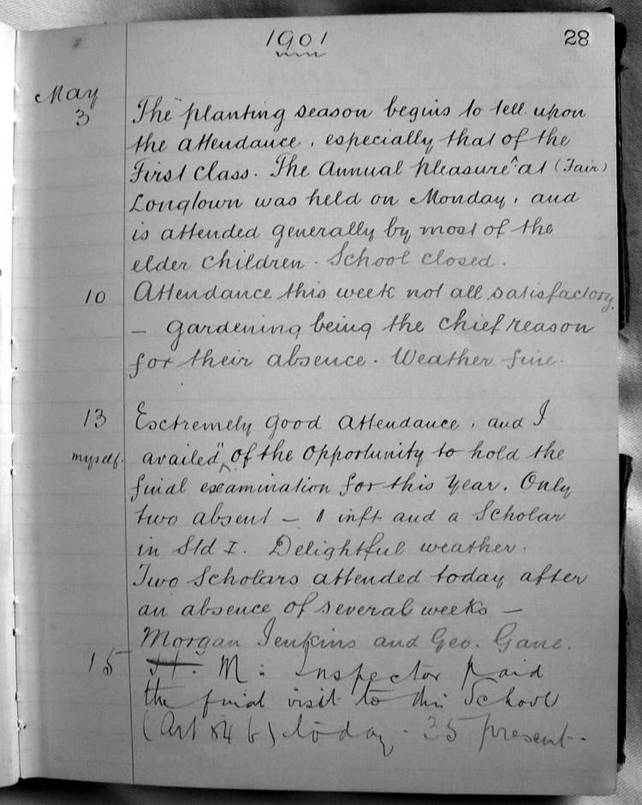 1901
28
May
3
The planting season begins to tell upon
the attendance, especially that of the
First Class. The Annual Pleasure ^ at (Fair)
Longtown was held on Monday, and
is attended generally by most of the
elder children. School closed.
10 Attendance this week not all satisfactory.
- gardening being the chief reason
for their absence. Weather fine.
13 Exctremely good attendance, and I
myself. availed " ^ of the opportunity to hold the
final excamination for this Year. Only
two absent - 1 inft and a Scholar
in Std I. Delightful weather.
Two Scholars attended today after
an absence of several weeks -
Morgan Jenkins and Geo. Gane.
15 H. M: Inspector paid
the final visit to this School
(Art 84 b) today. 35 present.